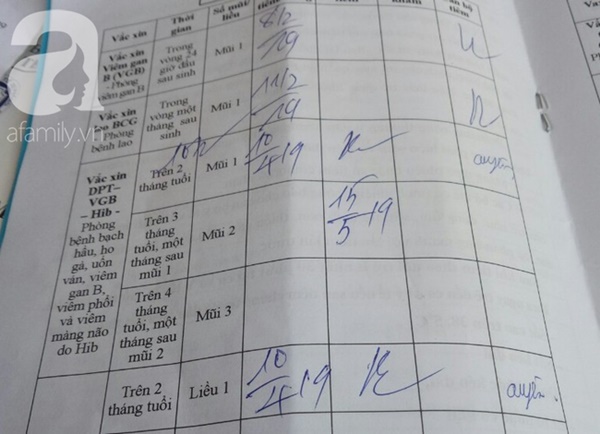 Vắc xin
Thời gian
Số mũi/ liều
tiêm
Vắc xin
Viêm gan
B (VGB)
- Phòng
viêm gan B
Trong
vòng 24
giờ đầu
sau sinh
Mũi 1
8/2
19
K
Vắc xin
BCG
Phòng
bệnh lao
Trong
vòng một
tháng sau
sinh
Mũi 1
11/2
19
K
afamily.vn
Vắc xin
DPT–
VGB
– Hib -
Phòng
bệnh bạch
hầu, ho
gà, uốn
ván, viêm
gan B,
viêm phổi
và viêm
màng não
do Hib
Trên 2
tháng tuổi
Mũi 1
10/4 19
K
Trên 3
tháng
tuổi, một
tháng sau
mũi 1
Mũi 2
15/5 19
Trên 4
tháng
tuổi, một
tháng sau
mũi 2
Mũi 3
Trên 2
tháng tuổi
Liều 1
10/4 19
K